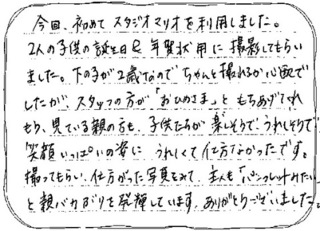 今回、初めてスタジオマリオを利用しました。
2人の子供の誕生日&年賀状用に撮影してもらい
ました。下の子が2歳なのでちゃんと撮れるか心配で
したが、スタッフの方が「おひめさま」ともちあげてくれ
もり、見ている親の方も、子供たちが楽しそうで、うれしそうで
笑顔いっぱいの姿にうれしくて仕方なかったです。
撮ってもらい、仕上がった写真をみて、主人も「パンフレットみたい」
と親バカぶりを発揮しています。ありがとうございました。